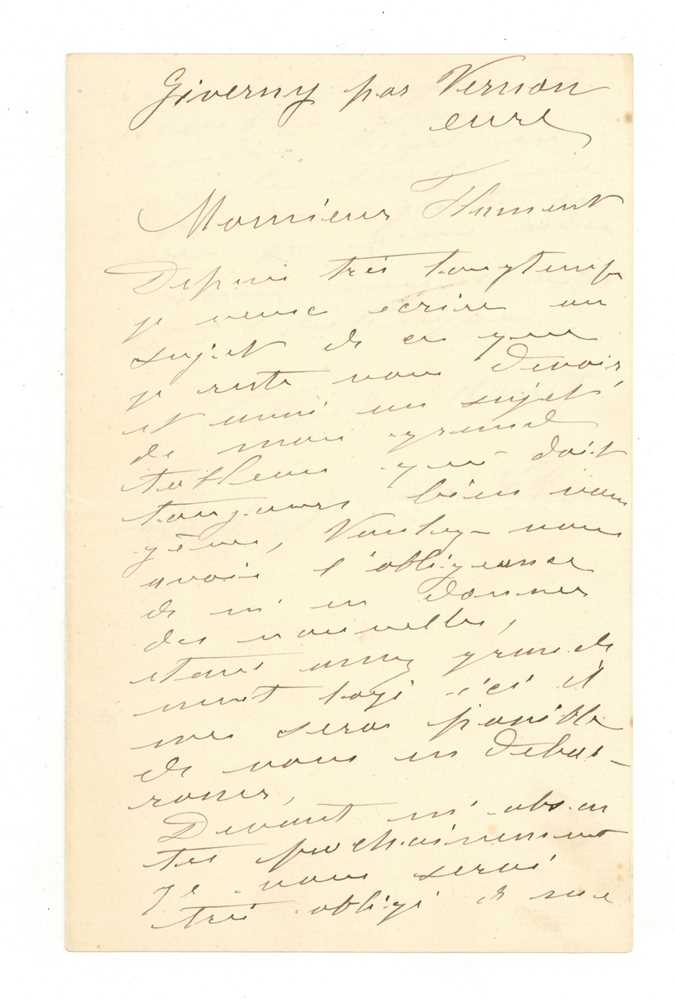 Giverny par Vernon
eure
Monsieur Flament
Depuis très longtemps
je veux écrire au
sujet de ce que
je reste vous devoir
et aussi au sujet
de mon grand
tableau qui doit
toujours bien vous
gêner, Voulez-vous
avoir l'obligeance
de m'en donner
des nouvelles,
étant assez grande
ment logé ici il
me sera possible
de vous en débar-
rasser,
Devant m'absen
ter prochainement
je vous serai
très obligé de me